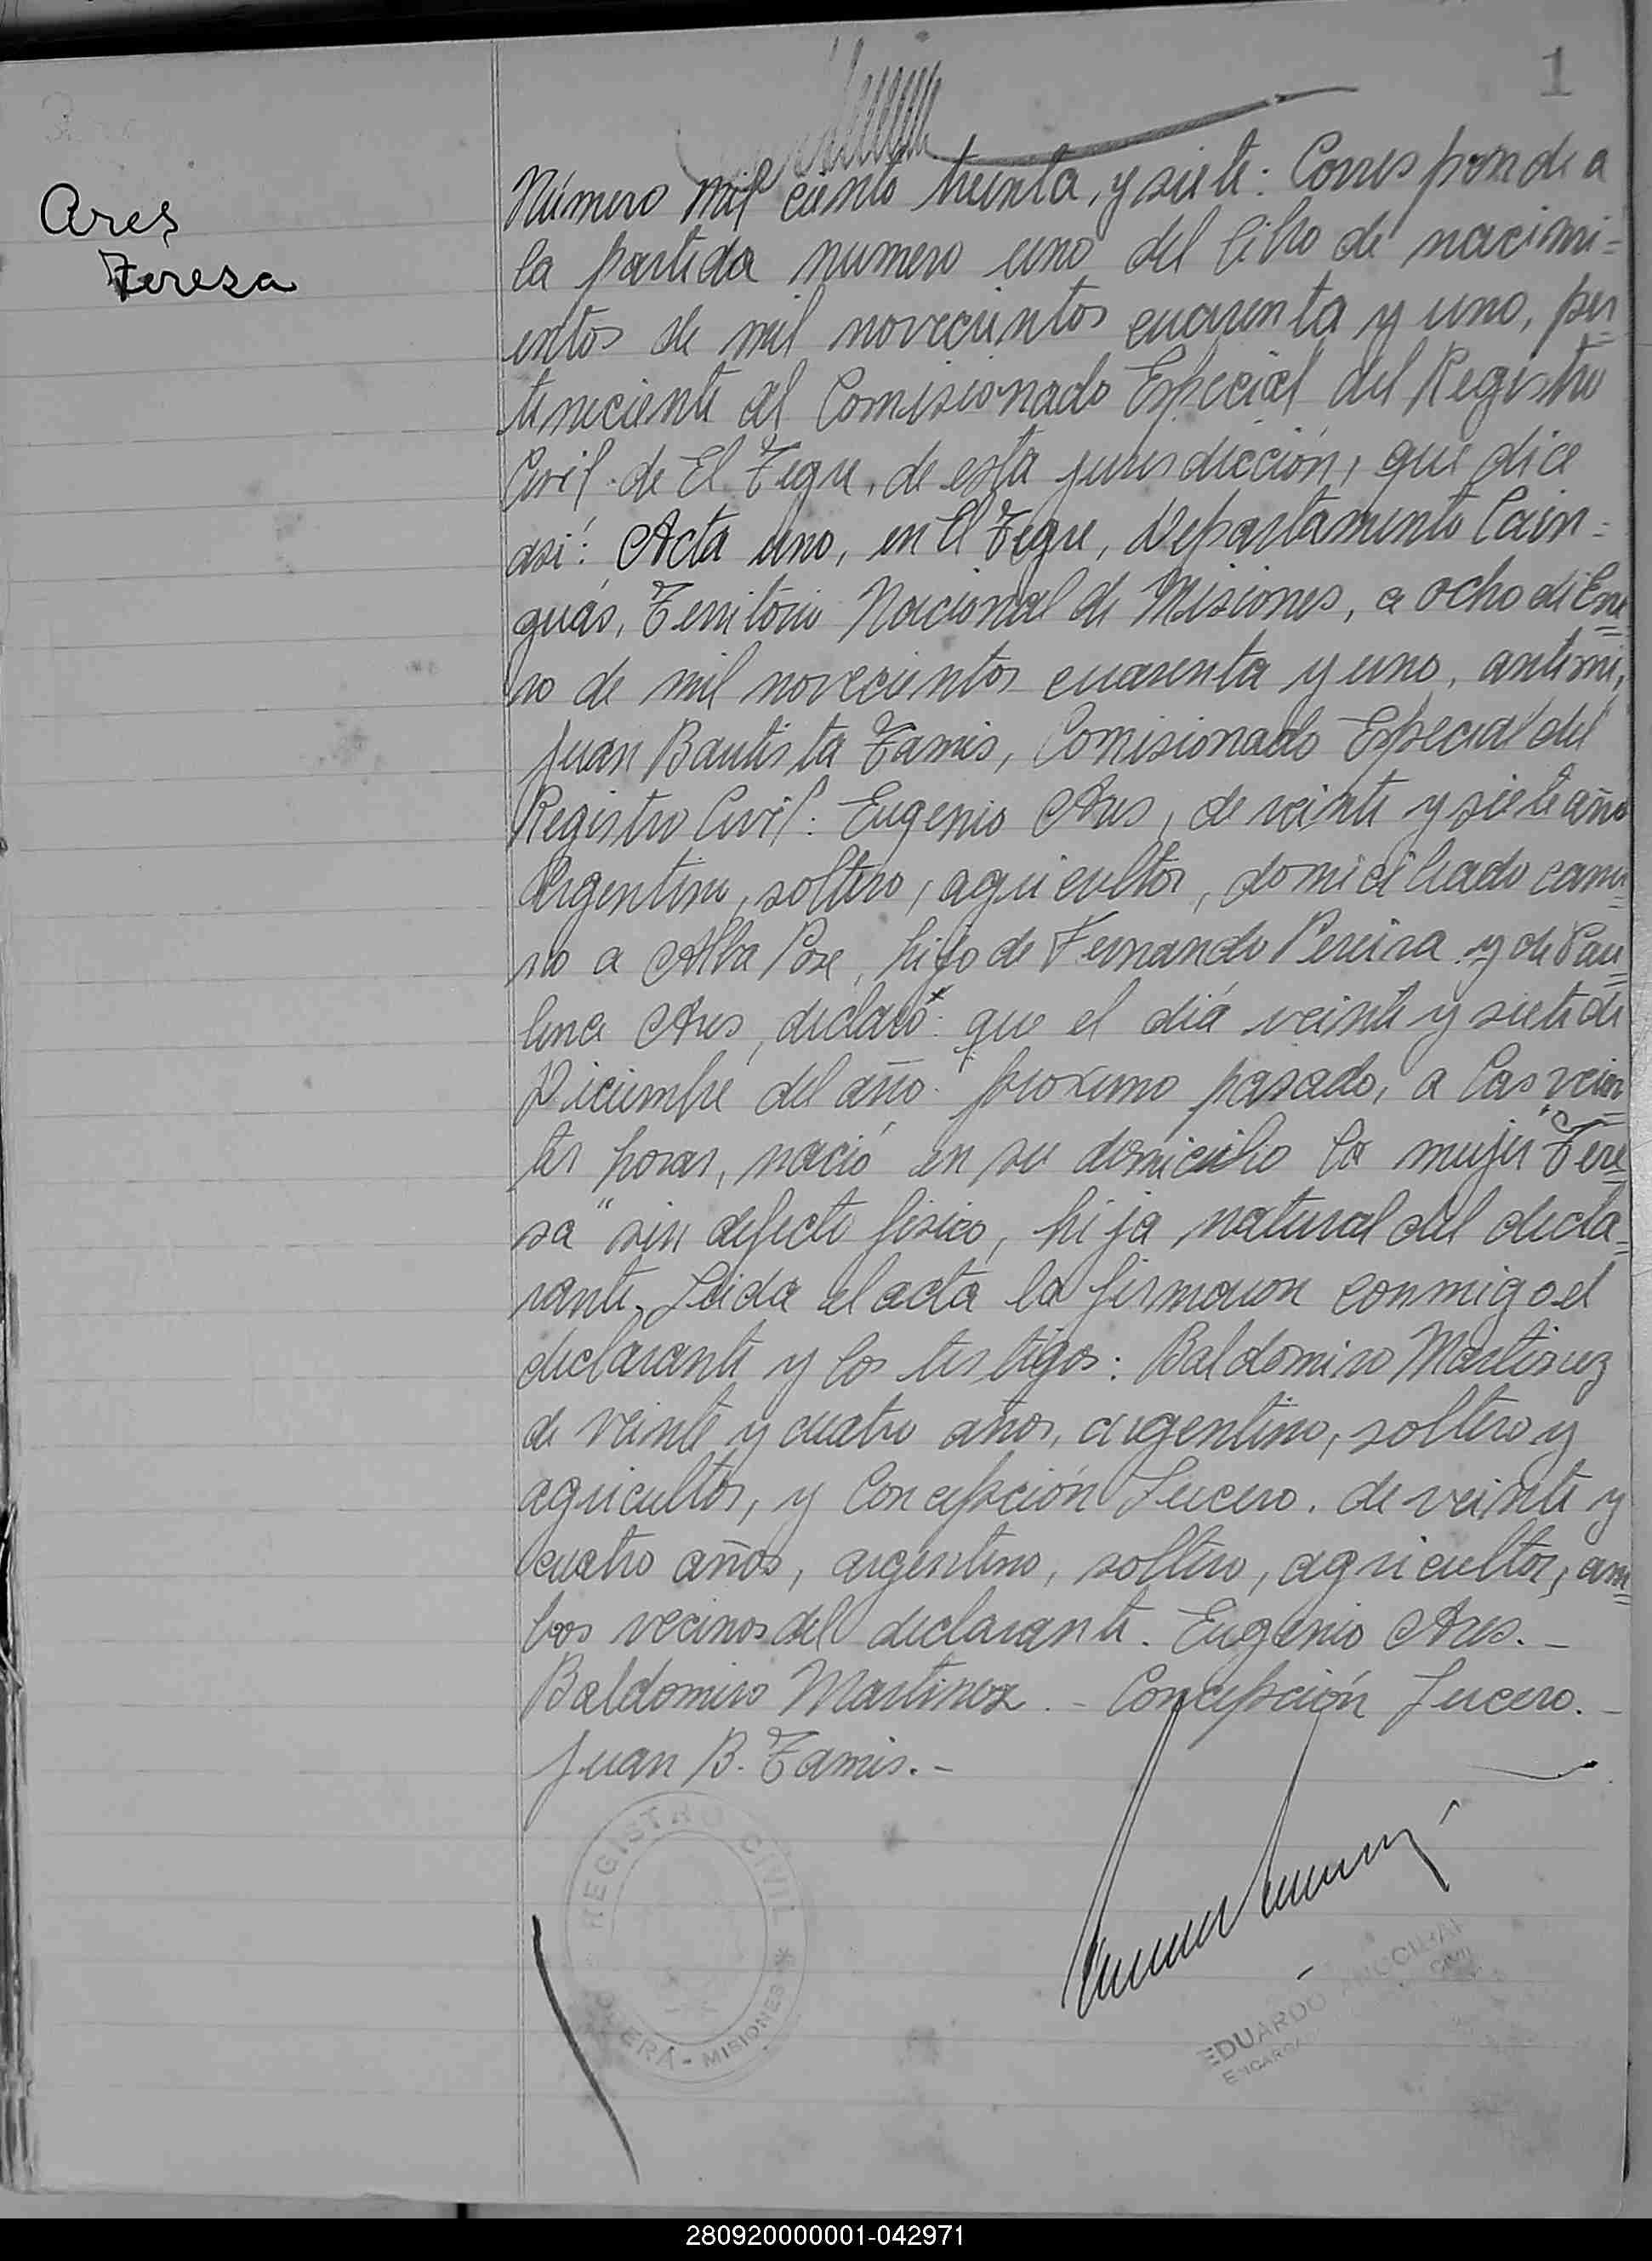 1
Ares
Teresa
Número mil ciento treinta, y siete: Corresponde a
la partida numero uno del libro de nacimi=
entos de mil novecientos cuarenta y uno, per=
teneciente al Comisionado Especial del Registro
Civil de El Tegre, de esta jurisdicción, que dice
así: Acta uno, en El Tegre, Departamento Cain=
guás, Territorio Nacional de Misiones, a ocho de Ene=
ro de mil novecientos cuarenta y uno, ante mi,
Juan Bautista Tamis, Comisionado Especial del
Registro Civil: Eugenio Ares, de veinte y siete años
Argentino, soltero, agricultor, domiciliado cami=
no a Alba Pose, hijo de Fernando Pereira y de Pau=
lina Ares, declaró: que el diá veinte y siete de
Diciembre del año proximo pasado, a las vein=
tes horas, nació en su domicilio la mujer "Tere=
sa" sin defecto fisico, hija natural del decla=
rante. Leida el acta la firmaron conmigo el
declarante y los testigos: Baldomiro Martinez
de veinte y cuatro años, argentino, soltero y
agricultor, y Concepción Lucero. de veinte y
cuatro años, argentino, soltero, agricultor, am=
bos vecinos del declarante. Eugenio Ares. -
Baldomiro Martinez. - Concepción Lucero. -
Juan B. Tamis. -
REGISTRO CIVIL
OBERÁ - MISIONES *
EDUARDO
280920000001-042971